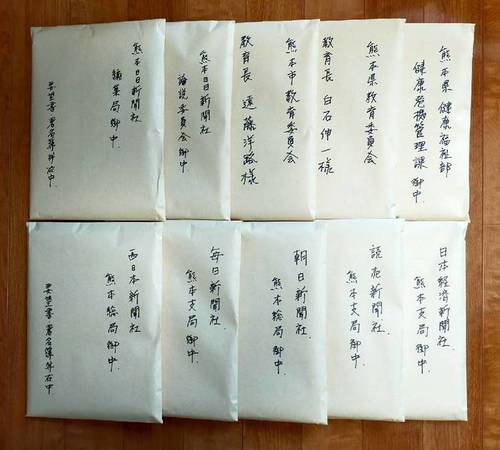 熊本県 健康福祉部
健康危機管理課 御中
熊本県教育委員会
教育長 白石伸一様
熊本市教育委員会
教育長 遠藤洋路様
熊本日日新聞社
論説委員会 御中
熊本日日新聞社
編集局 御中
要望書 署名簿等在中
日本経済新聞社.
熊本支局 御中.
読売新聞社.
熊本支局 御中.
朝日新聞社.
熊本総局 御中.
毎日新聞社.
熊本支局 御中.
西日本新聞社.
熊本総局 御中.
要望書 署名簿等在中